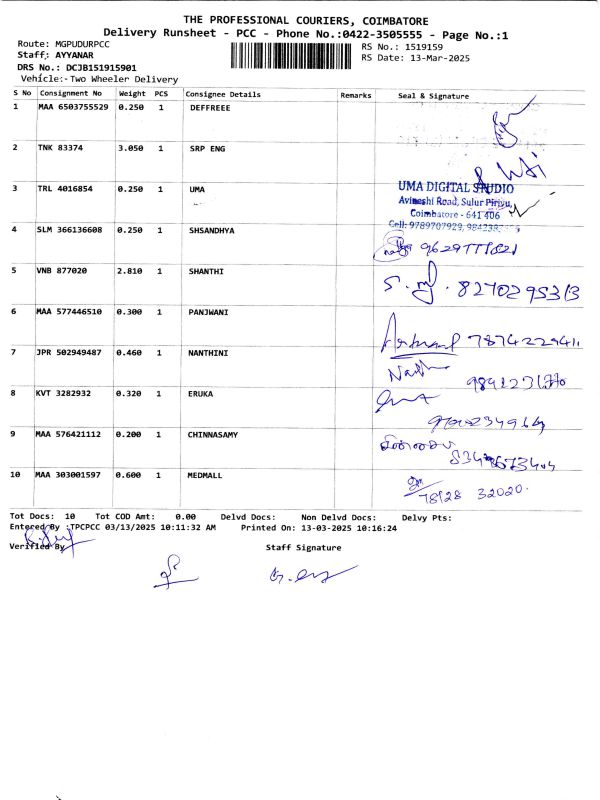 THE PROFESSIONAL COURIERS, COIMBATORE
Delivery Runsheet - PCC - Phone No.:0422-3505555 - Page No.:1
Route: MGPUDURPCC
RS No.: 1519159
Staff: AYYANAR
RS Date: 13-Mar-2025
DRS No.: DCJB151915901
Vehicle:- Two Wheeler Delivery
S No Consignment No Weight PCS Consignee Details Remarks Seal & Signature
1 MAA 6503755529 0.250 1 DEFFREEE
2 TNK 83374 3.050 1 SRP ENG
3 TRL 4016854 0.250 1 UMA
UMA DIGITAL STUDIO
Avinashi Road, Sulur Pirivu,
Coimbatore - 641 406
Cell: 9789707929,
4 SLM 366136608 0.250 1 SHSANDHYA
5 VNB 877020 2.810 1 SHANTHI
8270295313
6 MAA 577446510 0.300 1 PANJWANI
7874229411
7 JPR 502949487 0.460 1 NANTHINI
8 KVT 3282932 0.320 1 ERUKA
9 MAA 576421112 0.200 1 CHINNASAMY
10 MAA 303001597 0.600 1 MEDMALL
78128 32020.
Tot Docs: 10 Tot COD Amt: 0.00 Delvd Docs: Non Delvd Docs: Delvy Pts:
Entered By :TPCPCC 03/13/2025 10:11:32 AM Printed On: 13-03-2025 10:16:24
Verified By
Staff Signature